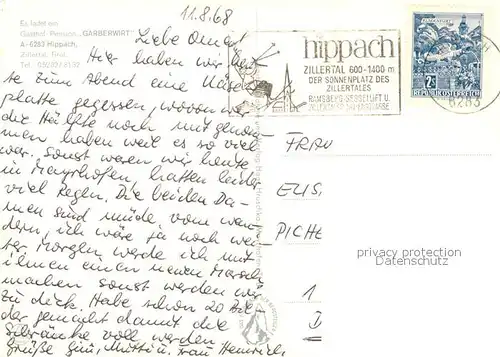 11.8.68
Es ladet ein
Gasthof Pension „GARBERWIRT"
A-6283 Hippach,
Zillertal, Tirol,
Tel.
Liebe Oma!
Hier haben wir heu-
te zum Abend eine Käse-
platte gegessen, wovon wir
die Hälfte noch mitgenom-
men haben weil es so viel
war. Sonst waren wir heute
in Mayrhofen, hatten leider
viel Regen. Die beiden Da-
men sind müde vom wan-
dern, ich wäre ja noch wei-
ter Morgen werde ich mit
ihnen einen neuen Marsch
machen sonst werden wir
zu dick. Habe schon 20 Bil-
der gemacht damit die
Schränke voll werden.
Grüße Mutti u. Frau Heinrich
hippach
ZILLERTAL 600-1400 m
DER SONNENPLATZ DES
ZILLERTALES
RAMSBERG-SESSELLIFT U.
KLAGENFURT
2S
REPUBLIK ÖSTERREICH
6283
FRAU
ELIS
PICHE
1
privacy protection
Datenschutz